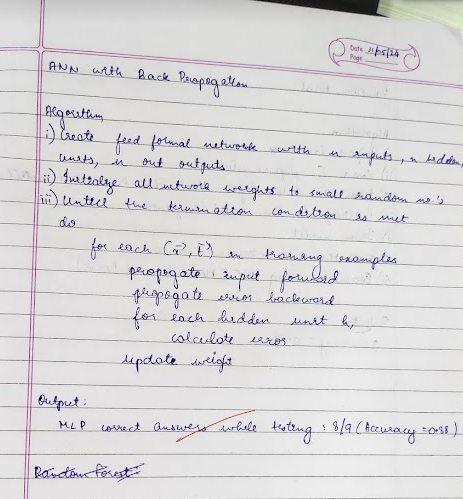 Date 21/05/24
Page
ANN with Back Propogation
Algorithm
i) Create feed formal network with n inputs, n hidden,
units, n out outputs
ii) Initialize all network weights to small random no.'s
iii) Until the termination condition is met
do
for each (x⃗, t⃗) in training examples
propogate input forward
propogate error backward
for each hidden unit h,
calculate error
update weight
Output:
MLP correct answers while testing : 8/9 (Accuracy = 0.88)
Random Forest